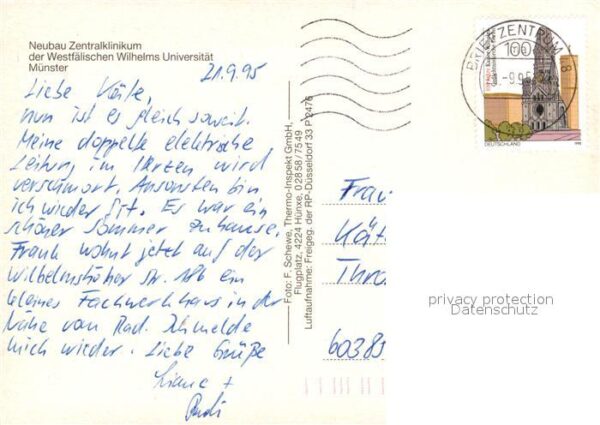 Neubau Zentralklinikum
der Westfälischen Wilhelms Universität
Münster
21.9.95
Liebe Käte,
nun ist es gleich soweit.
Meine doppelte elektrische
Leitung im Herzen wird
verschmort. Ansonsten bin
ich wieder fit. Es war ein
schöner Sommer zuhause.
Frank wohnt jetzt auf der
Wilhelmshöher Str. 186 ein
kleines Fachwerkhaus in der
Nähe von Rad. Ich melde
mich wieder. Liebe Grüße
Liane +
Rudi
Foto: F. Schewe, Thermo-Inspekt GmbH,
Flugplatz, 4224 Hünxe, 02858/7549
Luftaufnahme: Freigeg. der RP-Düsseldorf 33 P 2476
BRIEFZENTRUM
100
DEUTSCHLAND
Frau
Kät
Thro
6038
privacy protection
Datenschutz